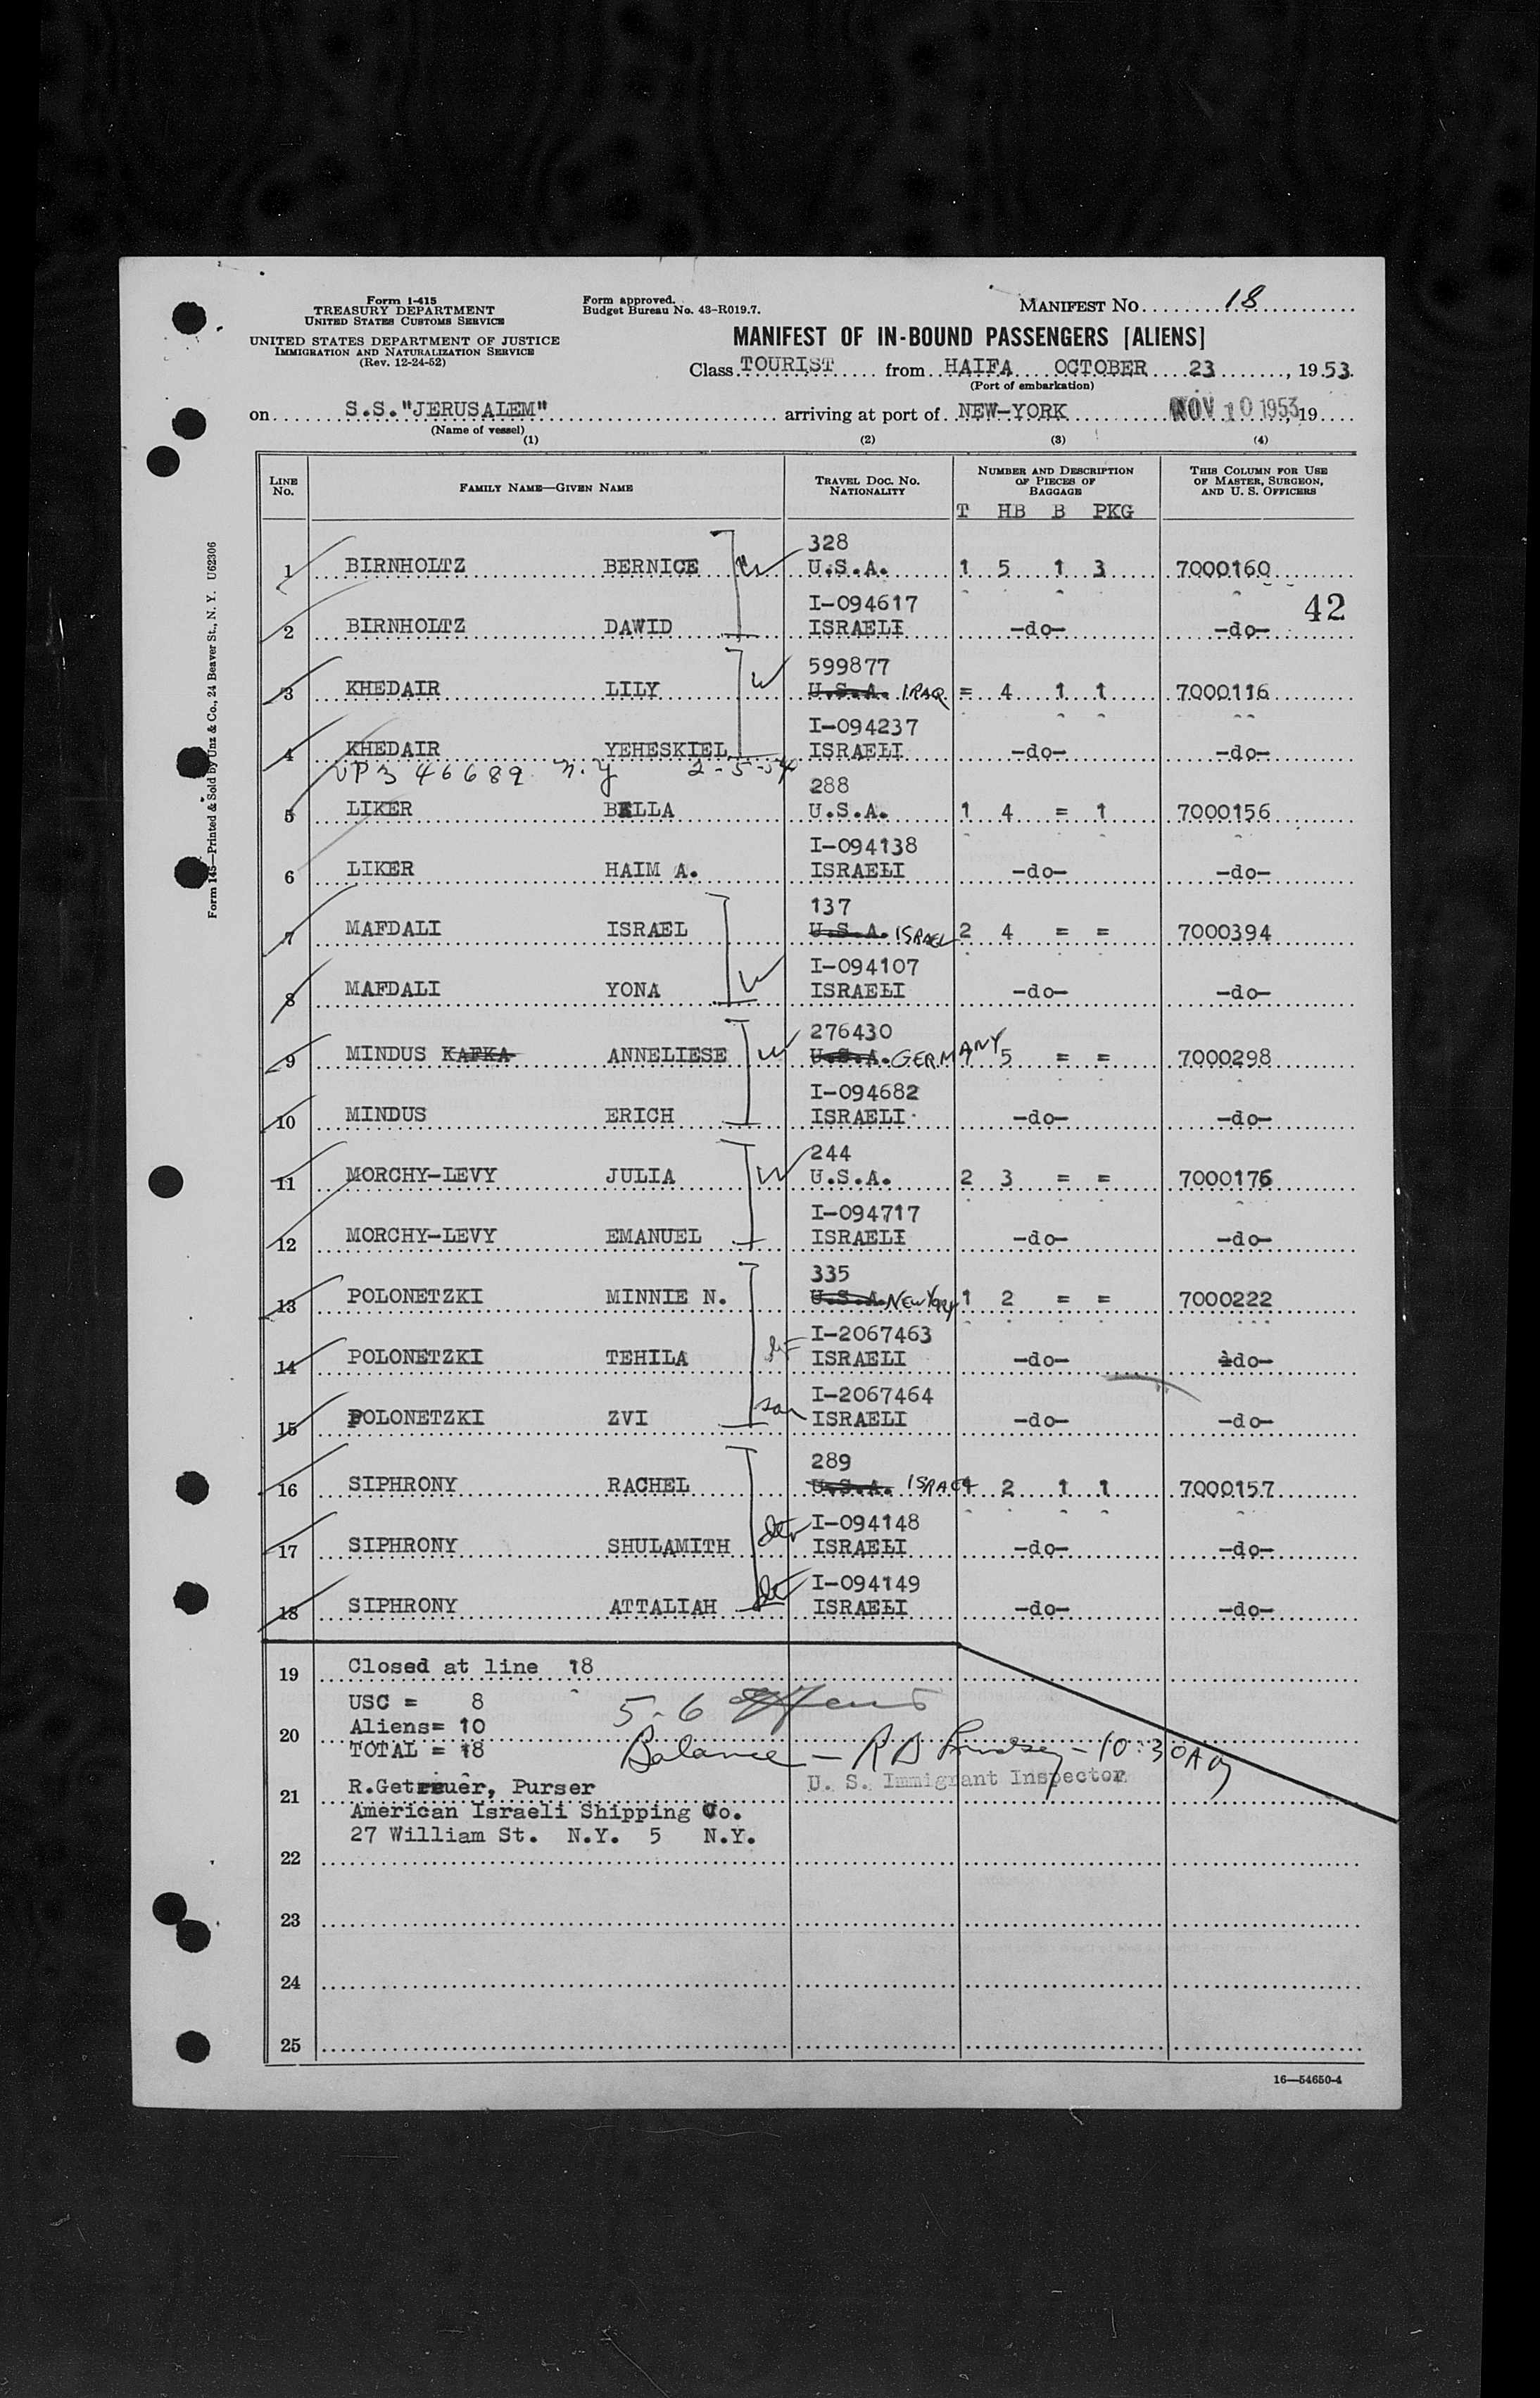 Form I-415
TREASURY DEPARTMENT
UNITED STATES CUSTOMS SERVICE
UNITED STATES DEPARTMENT OF JUSTICE
IMMIGRATION AND NATURALIZATION SERVICE
(Rev. 12-24-52)
Form approved.
Budget Bureau No. 43-R019.7.
MANIFEST No. 18
MANIFEST OF IN-BOUND PASSENGERS [ALIENS]
Class TOURIST from HAIFA OCTOBER 23, 1953
(Port of embarkation)
on S.S."JERUSALEM" arriving at port of NEW-YORK NOV 10 1953, 19
(Name of vessel)
(1) (2) (3) (4)
LINE No. FAMILY NAME—GIVEN NAME TRAVEL DOC. No. NATIONALITY NUMBER AND DESCRIPTION OF PIECES OF BAGGAGE THIS COLUMN FOR USE OF MASTER, SURGEON, AND U. S. OFFICERS
T HB B PKG
328
1 BIRNHOLTZ BERNICE W U.S.A. 1 5 1 3 7000160
42
I-094617
2 BIRNHOLTZ DAWID ISRAELI -do- -do-
599877
3 KHEDAIR LILY W U.S.A. IRAQ = 4 1 1 7000116
I-094237
4 KHEDAIR YEHESKIEL ISRAELI -do- -do-
VP3 46689 N.Y 2-5-54
288
5 LIKER BELLA U.S.A. 1 4 = 1 7000156
I-094138
6 LIKER HAIM A. ISRAELI -do- -do-
137
7 MAFDALI ISRAEL U.S.A. ISRAEL 2 4 = = 7000394
I-094107
8 MAFDALI YONA W ISRAELI -do- -do-
276430
9 MINDUS KAFKA ANNELIESE W U.S.A. GERMANY 5 = = 7000298
I-094682
10 MINDUS ERICH ISRAELI -do- -do-
244
11 MORCHY-LEVY JULIA W U.S.A. 2 3 = = 7000176
I-094717
12 MORCHY-LEVY EMANUEL ISRAELI -do- -do-
335
13 POLONETZKI MINNIE N. U.S.A. NEW YORK 1 2 = = 7000222
I-2067463
14 POLONETZKI TEHILA ISRAELI -do- -do-
I-2067464
15 POLONETZKI ZVI son ISRAELI -do- -do-
289
16 SIPHRONY RACHEL U.S.A. ISRAEL 2 1 1 7000157
I-094148
17 SIPHRONY SHULAMITH dtr ISRAELI -do- -do-
I-094149
18 SIPHRONY ATTALIAH ISRAELI -do- -do-
19 Closed at line 18
USC = 8
20 Aliens= 10 5-6
TOTAL = 18 Balance — 10:30 A
U. S. Immigrant Inspector
21 R.Getreuer, Purser
American Israeli Shipping Co.
27 William St. N.Y. 5 N.Y.
22
23
24
25
16—54650-4
Form 145—Printed & Sold by Unz & Co., 24 Beaver St., N. Y. U62306